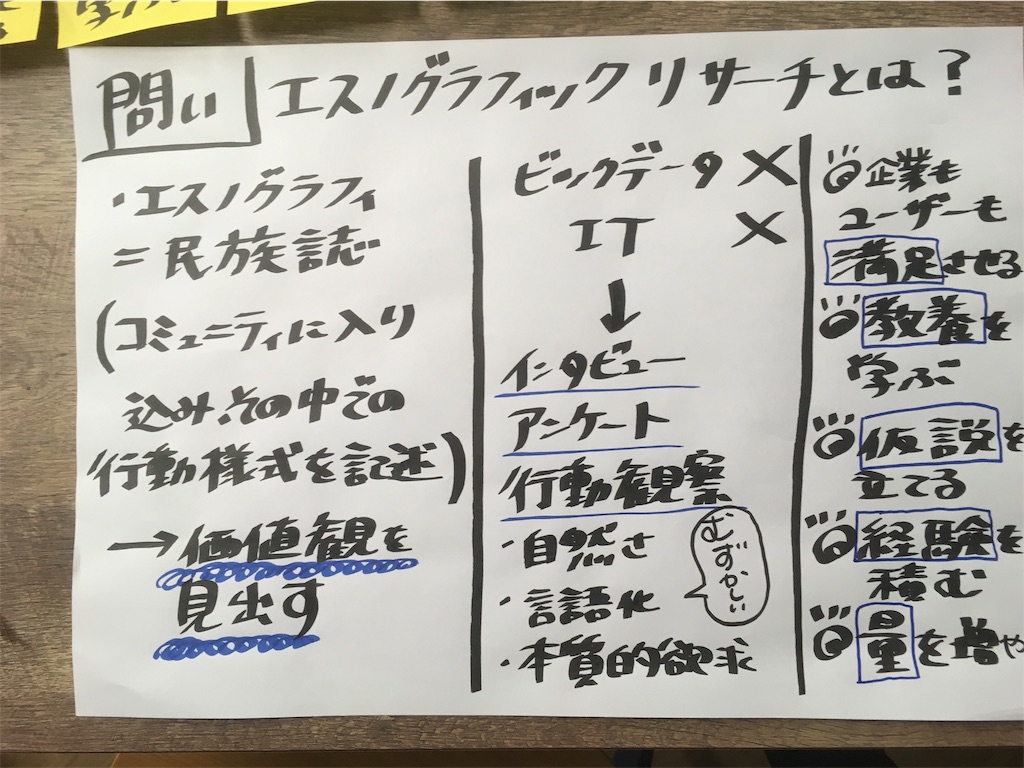 問い エスノグラフィックリサーチとは？
・エスノグラフィ
＝民族誌
(コミュニティに入り
込みその中での
行動様式を記述)
→価値観を
見出す
ビックデータ ×
IT ×
↓
インタビュー
アンケート
行動観察
・自然さ
・言語化
・本質的欲求
むずかしい
企業も
ユーザーも
満足させる
教養を
学ぶ
仮説を
立てる
経験を
積む
量を増や